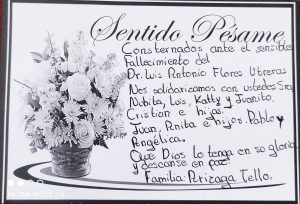 Sentido Pésame
Consternados ante el sensible
Fallecimiento del
Dr. Luis Antonio Flores Utreras
Nos solidarizamos con ustedes Sra
Nubita, Luis, Katty y Juanito,
Cristian e hijas.
Juan, Anita e hijos Pablo y
Angélica.
Que Dios lo tenga en su gloria
y descanse en paz
Familia: Arizaga Tello.
REDMI NOTE 10